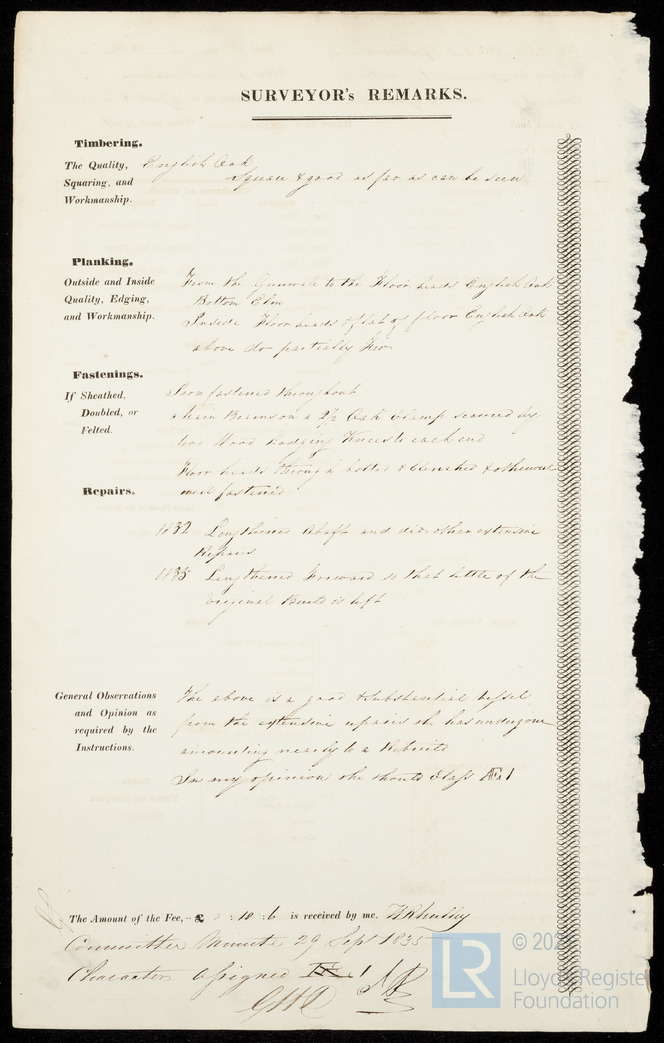 SURVEYOR's REMARKS.
Timbering.
The Quality, English Oak
Squaring, and Square & good as far as can be seen
Workmanship.
Planking.
Outside and Inside From the Gunwale to the Floor heads English Oak
Quality, Edging, Bottom Elm
and Workmanship. Inside Floor heads & flat of floor English Oak
above do partially Fir
Fastenings.
If Sheathed, Iron fastened throughout
Doubled, or Main Beams on a 2½ Oak Clamp secured by
Felted. two Wood Lodging Knees to each end
Floor heads through bolted & Clenched & otherwise
Repairs. well fastened
1832 Lengthened Abaft and did other extensive
Repairs
1835 Lengthened Forward so that little of the
original Build is left
General Observations The above is a good & substantial Vessel
and Opinion as from the extensive repairs she has undergone
required by the amounting nearly to a Rebuild
Instructions. In my opinion she should Class 1
The Amount of the Fee, £ : 10 : 6 is received by me.
Committee Minute 29 Sept 1835
Character Assigned 1
LR
Lloyd's Register
Foundation